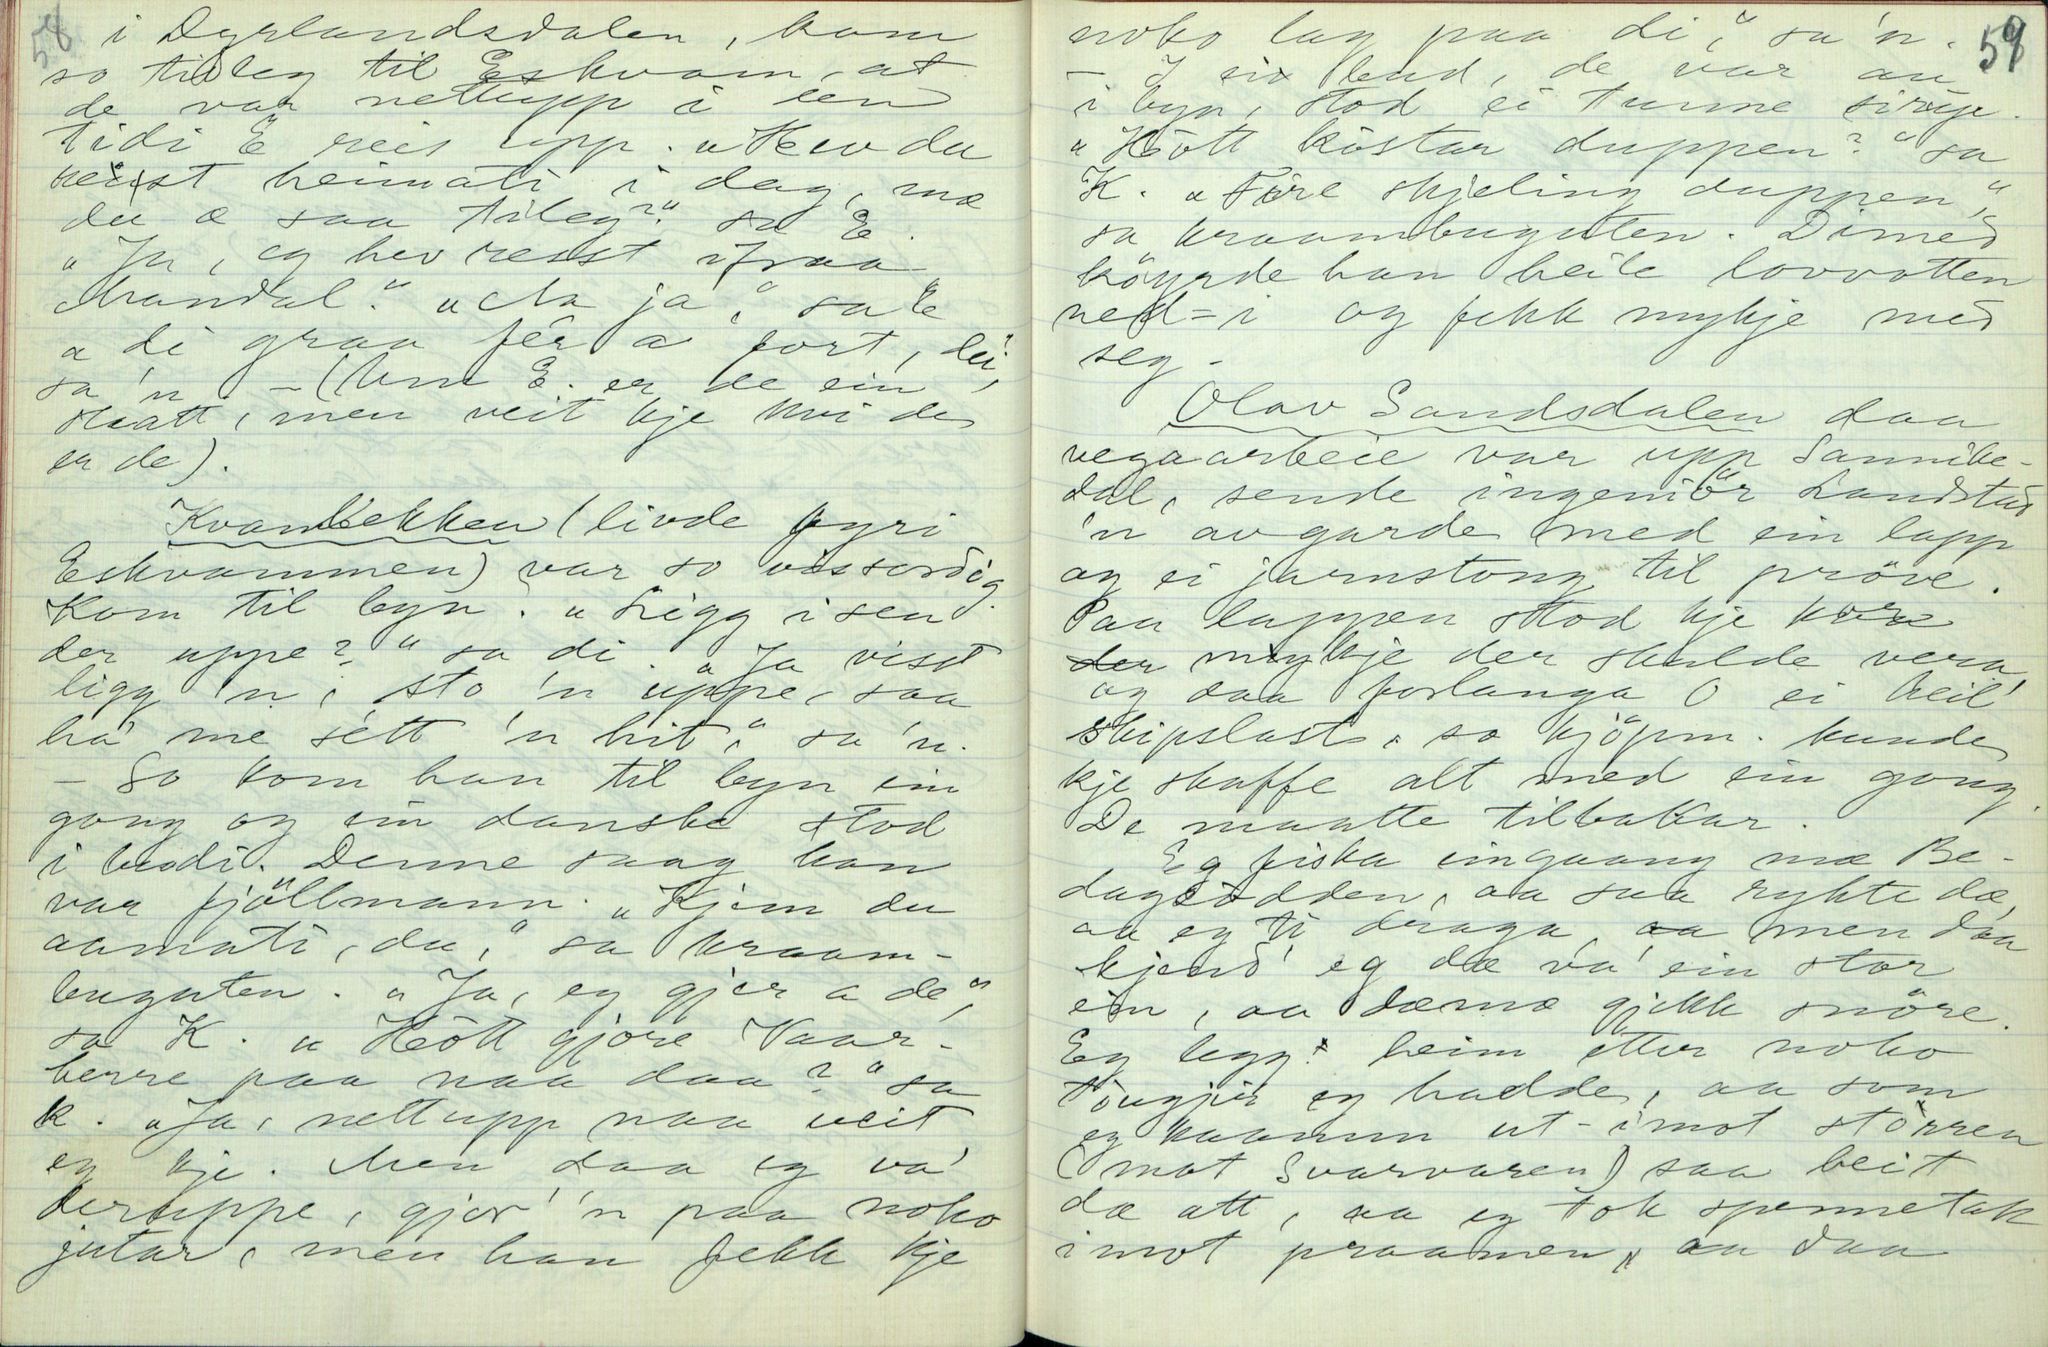 58
i Dyrlandsdalen, kom
so tidleg til Eskvam, at
de var nettupp i den
tidi E reis upp. „Hev du
reist heimati i dag, mæ
du æ saa tileg?" sa E.
„Ja, eg hev reist ifraa
Mandal." „Aa ja," sa E
„di graa fer a fort, dei",
sa'n – (Um E. er de ein
slaatt, men veit kje kvi de
er de).
Kvanbekken (livde fyri
Eskvammen) var so vissordig.
Kom til byn. „Ligg isen
der uppe?" sa di. „Ja visst
ligg 'n, sto 'n uppe, saa
ha' me sétt 'n hit," sa 'n.
– So kom han til byn ein
gong og ein danske stod
i budi. Denne saag han
var fjöllmann. „Kjem du
aamati, du," sa kraam-
buguten. „Ja, eg gjer a de",
sa K. „Hött gjore Vaar-
herre paa naa daa?" sa
k. „Ja, nettupp naa veit
eg kje. Men daa eg va'
deruppe, gjor' 'n paa noko
jutar, men han fekk kje
59
noko lag paa di," sa'n.
– I ei bud, de var au
i byn, stod ei tunne sirup.
„Hött kostar duppen?" sa
K. „Fire skjeling duppen,"
sa kraambuguten. Dimed
köyrde han heile lovvotten
ned-i og fekk mykje med
seg –
Olav Sandsdalen daa
vegaarbeie var upp Sannike-
dal, sende ingeniör Landstad
'n avgarde med ein lapp
og ei jarnstong til pröve.
Paa lappen stod kje kor
der mykje der skulde vera,
og daa forlanga O ei heil'
skipslast, so kjöpm. kunde
kje skaffe alt med ein gong.
De maatte tilbakar.
Eg fiska eingaang mæ Be-
dagsodden, aa saa rykte dæ,
aa eg ti draga, aa men daa
kjend' eg dæ va' ein stor
ein, aa dæmæ gjekk snöre.
Eg legg heim etter noko
tougjir eg hadde, aa som
eg kaamm ut-imot störren
(mot Svarvaren) saa beit
dæ att, aa eg tok spennetak
imot praamen, aa daa